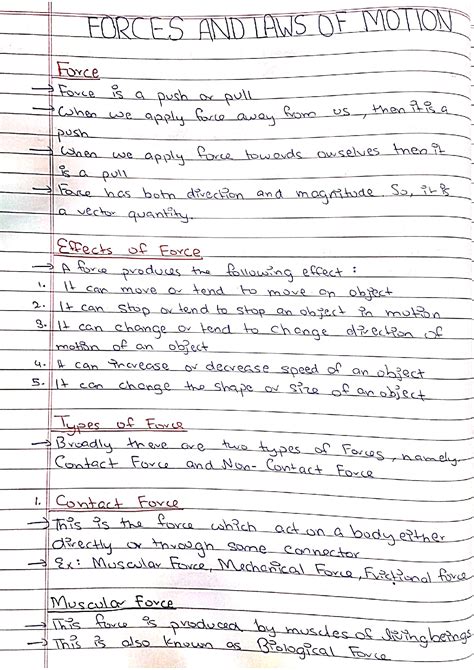 FORCES AND LAWS OF MOTION
Force
→ Force is a push or pull
→ When we apply force away from us, then it is a
push
→ When we apply force towards ourselves then it
is a pull
→ Force has both direction and magnitude. So, it is
a vector quantity.
Effects of Force
→ A force produces the following effect :
1. It can move or tend to move an object
2. It can stop or tend to stop an object in motion
3. It can change or tend to change direction of
motion of an object
4. It can increase or decrease speed of an object
5. It can change the shape or size of an object
Types of Force
→ Broadly there are two types of Forces, namely.
Contact Force and Non-Contact Force
1. Contact Force
→ This is the force which act on a body either
directly or through some connector
→ Ex: Muscular Force, Mechanical Force, Frictional force
Muscular Force
→ This force is produced by muscles of living beings
→ This is also known as Biological Force